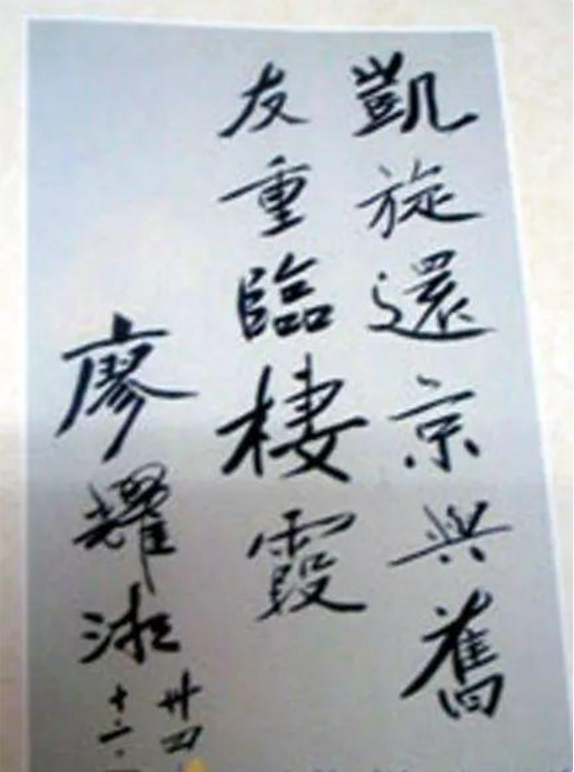 凱旋還京與舊
友重臨棲霞
廖耀湘
卅四
十二